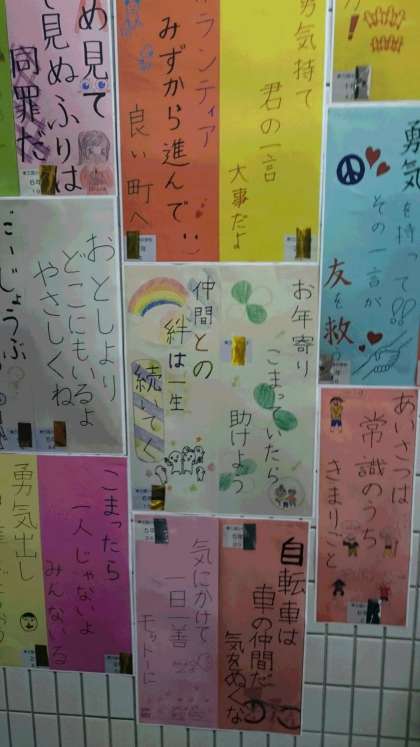 め見て
見ぬふりは
同罪だ
ボランティア
みずから進んで
良い町へ
勇気持て
君の一言
大事だよ
勇気を持って
その一言が
友を救
おとしより
どこにもいるよ
やさしくね
だいじょうぶ
仲間との
絆は一生
続いてく
お年寄り
こまっていたら
助けよう
あいさつは
常識のうち
きまりごと
勇気出し
こまったら
一人じゃないよ
みんないる
気にかけて
一日一善
モットーに
自転車は
車の仲間だ
気をぬくな